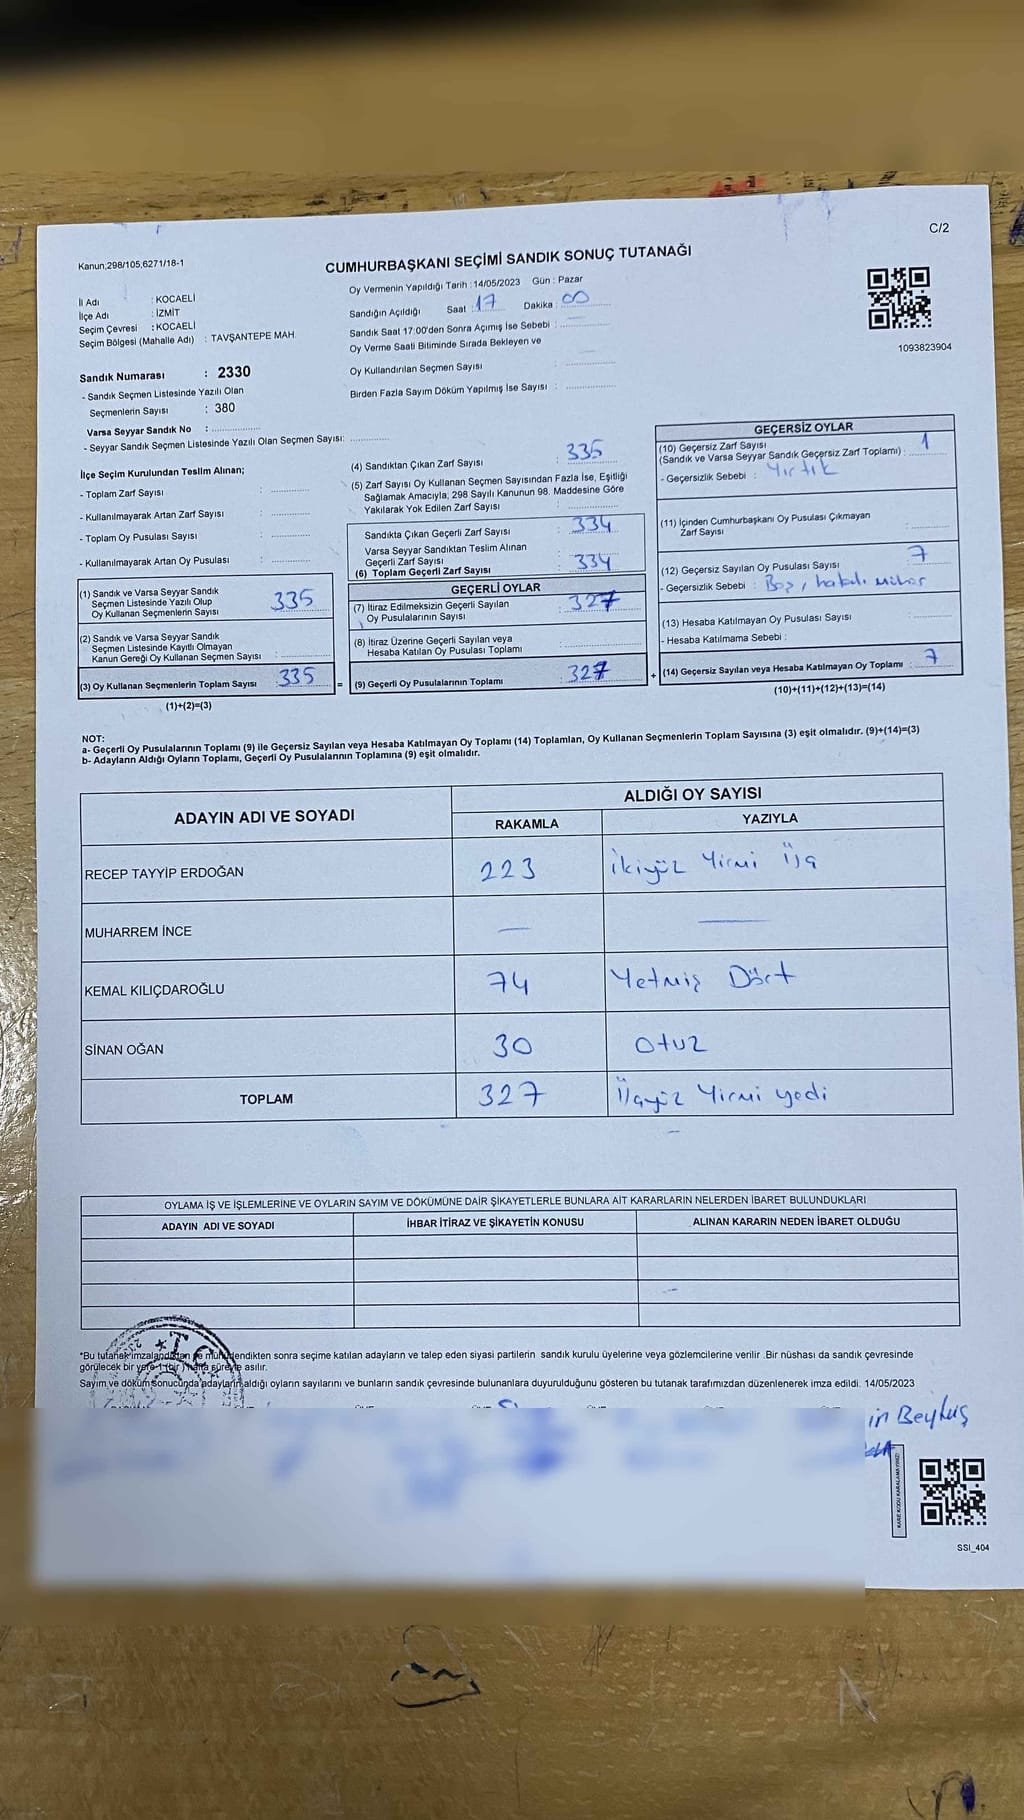 C/2
Kanun;298/105,6271/18-1
CUMHURBAŞKANI SEÇİMİ SANDIK SONUÇ TUTANAĞI
Oy Vermenin Yapıldığı Tarih : 14/05/2023 Gün : Pazar
İl Adı : KOCAELİ
İlçe Adı : İZMİT
Seçim Çevresi : KOCAELİ
Seçim Bölgesi (Mahalle Adı) : TAVŞANTEPE MAH.
Sandığın Açıldığı Saat : 17 Dakika : 00
Sandık Saat 17:00'den Sonra Açımış İse Sebebi :
Oy Verme Saati Bitiminde Sırada Bekleyen ve
Oy Kullandırılan Seçmen Sayısı :
Birden Fazla Sayım Döküm Yapılmış İse Sayısı :
1093823904
Sandık Numarası : 2330
- Sandık Seçmen Listesinde Yazılı Olan
Seçmenlerin Sayısı : 380
Varsa Seyyar Sandık No :
- Seyyar Sandık Seçmen Listesinde Yazılı Olan Seçmen Sayısı:
İlçe Seçim Kurulundan Teslim Alınan;
- Toplam Zarf Sayısı :
- Kullanılmayarak Artan Zarf Sayısı :
- Toplam Oy Pusulası Sayısı :
- Kullanılmayarak Artan Oy Pusulası :
(1) Sandık ve Varsa Seyyar Sandık
Seçmen Listesinde Yazılı Olup
Oy Kullanan Seçmenlerin Sayısı : 335
(2) Sandık ve Varsa Seyyar Sandık
Seçmen Listesinde Kayıtlı Olmayan
Kanun Gereği Oy Kullanan Seçmen Sayısı :
(3) Oy Kullanan Seçmenlerin Toplam Sayısı : 335
(1)+(2)=(3)
=
(4) Sandıktan Çıkan Zarf Sayısı : 335
(5) Zarf Sayısı Oy Kullanan Seçmen Sayısından Fazla İse, Eşitliği
Sağlamak Amacıyla; 298 Sayılı Kanunun 98. Maddesine Göre
Yakılarak Yok Edilen Zarf Sayısı :
Sandıkta Çıkan Geçerli Zarf Sayısı : 334
Varsa Seyyar Sandıktan Teslim Alınan
Geçerli Zarf Sayısı :
(6) Toplam Geçerli Zarf Sayısı : 334
GEÇERLİ OYLAR
(7) İtiraz Edilmeksizin Geçerli Sayılan
Oy Pusulalarının Sayısı : 327
(8) İtiraz Üzerine Geçerli Sayılan veya
Hesaba Katılan Oy Pusulası Toplamı :
(9) Geçerli Oy Pusulalarının Toplamı : 327
+
GEÇERSİZ OYLAR
(10) Geçersiz Zarf Sayısı
(Sandık ve Varsa Seyyar Sandık Geçersiz Zarf Toplamı) : 1
- Geçersizlik Sebebi : Yırtık
(11) İçinden Cumhurbaşkanı Oy Pusulası Çıkmayan
Zarf Sayısı :
(12) Geçersiz Sayılan Oy Pusulası Sayısı : 7
- Geçersizlik Sebebi : Boş, hatalı mühür
(13) Hesaba Katılmayan Oy Pusulası Sayısı :
- Hesaba Katılmama Sebebi :
(14) Geçersiz Sayılan veya Hesaba Katılmayan Oy Toplamı : 7
(10)+(11)+(12)+(13)=(14)
NOT:
a- Geçerli Oy Pusulalarının Toplamı (9) ile Geçersiz Sayılan veya Hesaba Katılmayan Oy Toplamı (14) Toplamları, Oy Kullanan Seçmenlerin Toplam Sayısına (3) eşit olmalıdır. (9)+(14)=(3)
b- Adayların Aldığı Oyların Toplamı, Geçerli Oy Pusulalarının Toplamına (9) eşit olmalıdır.
ADAYIN ADI VE SOYADI ALDIĞI OY SAYISI
RAKAMLA YAZIYLA
RECEP TAYYİP ERDOĞAN 223 İkiyüz Yirmi Üç
MUHARREM İNCE — —
KEMAL KILIÇDAROĞLU 74 Yetmiş Dört
SİNAN OĞAN 30 Otuz
TOPLAM 327 Üçyüz Yirmi yedi
OYLAMA İŞ VE İŞLEMLERİNE VE OYLARIN SAYIM VE DÖKÜMÜNE DAİR ŞİKAYETLERLE BUNLARA AİT KARARLARIN NELERDEN İBARET BULUNDUKLARI
ADAYIN ADI VE SOYADI İHBAR İTİRAZ VE ŞİKAYETİN KONUSU ALINAN KARARIN NEDEN İBARET OLDUĞU
T.C.
*Bu tutanak imzalandıktan ve mühürlendikten sonra seçime katılan adayların ve talep eden siyasi partilerin sandık kurulu üyelerine veya gözlemcilerine verilir .Bir nüshası da sandık çevresinde
görülecek bir yere 1 (bir) hafta süreyle asılır.
Sayım ve döküm sonucunda adayların aldığı oyların sayılarını ve bunların sandık çevresinde bulunanlara duyurulduğunu gösteren bu tutanak tarafımızdan düzenlenerek imza edildi. 14/05/2023
in Beykuş
KARE KODU KARALAMAYINIZ!
SSI_404